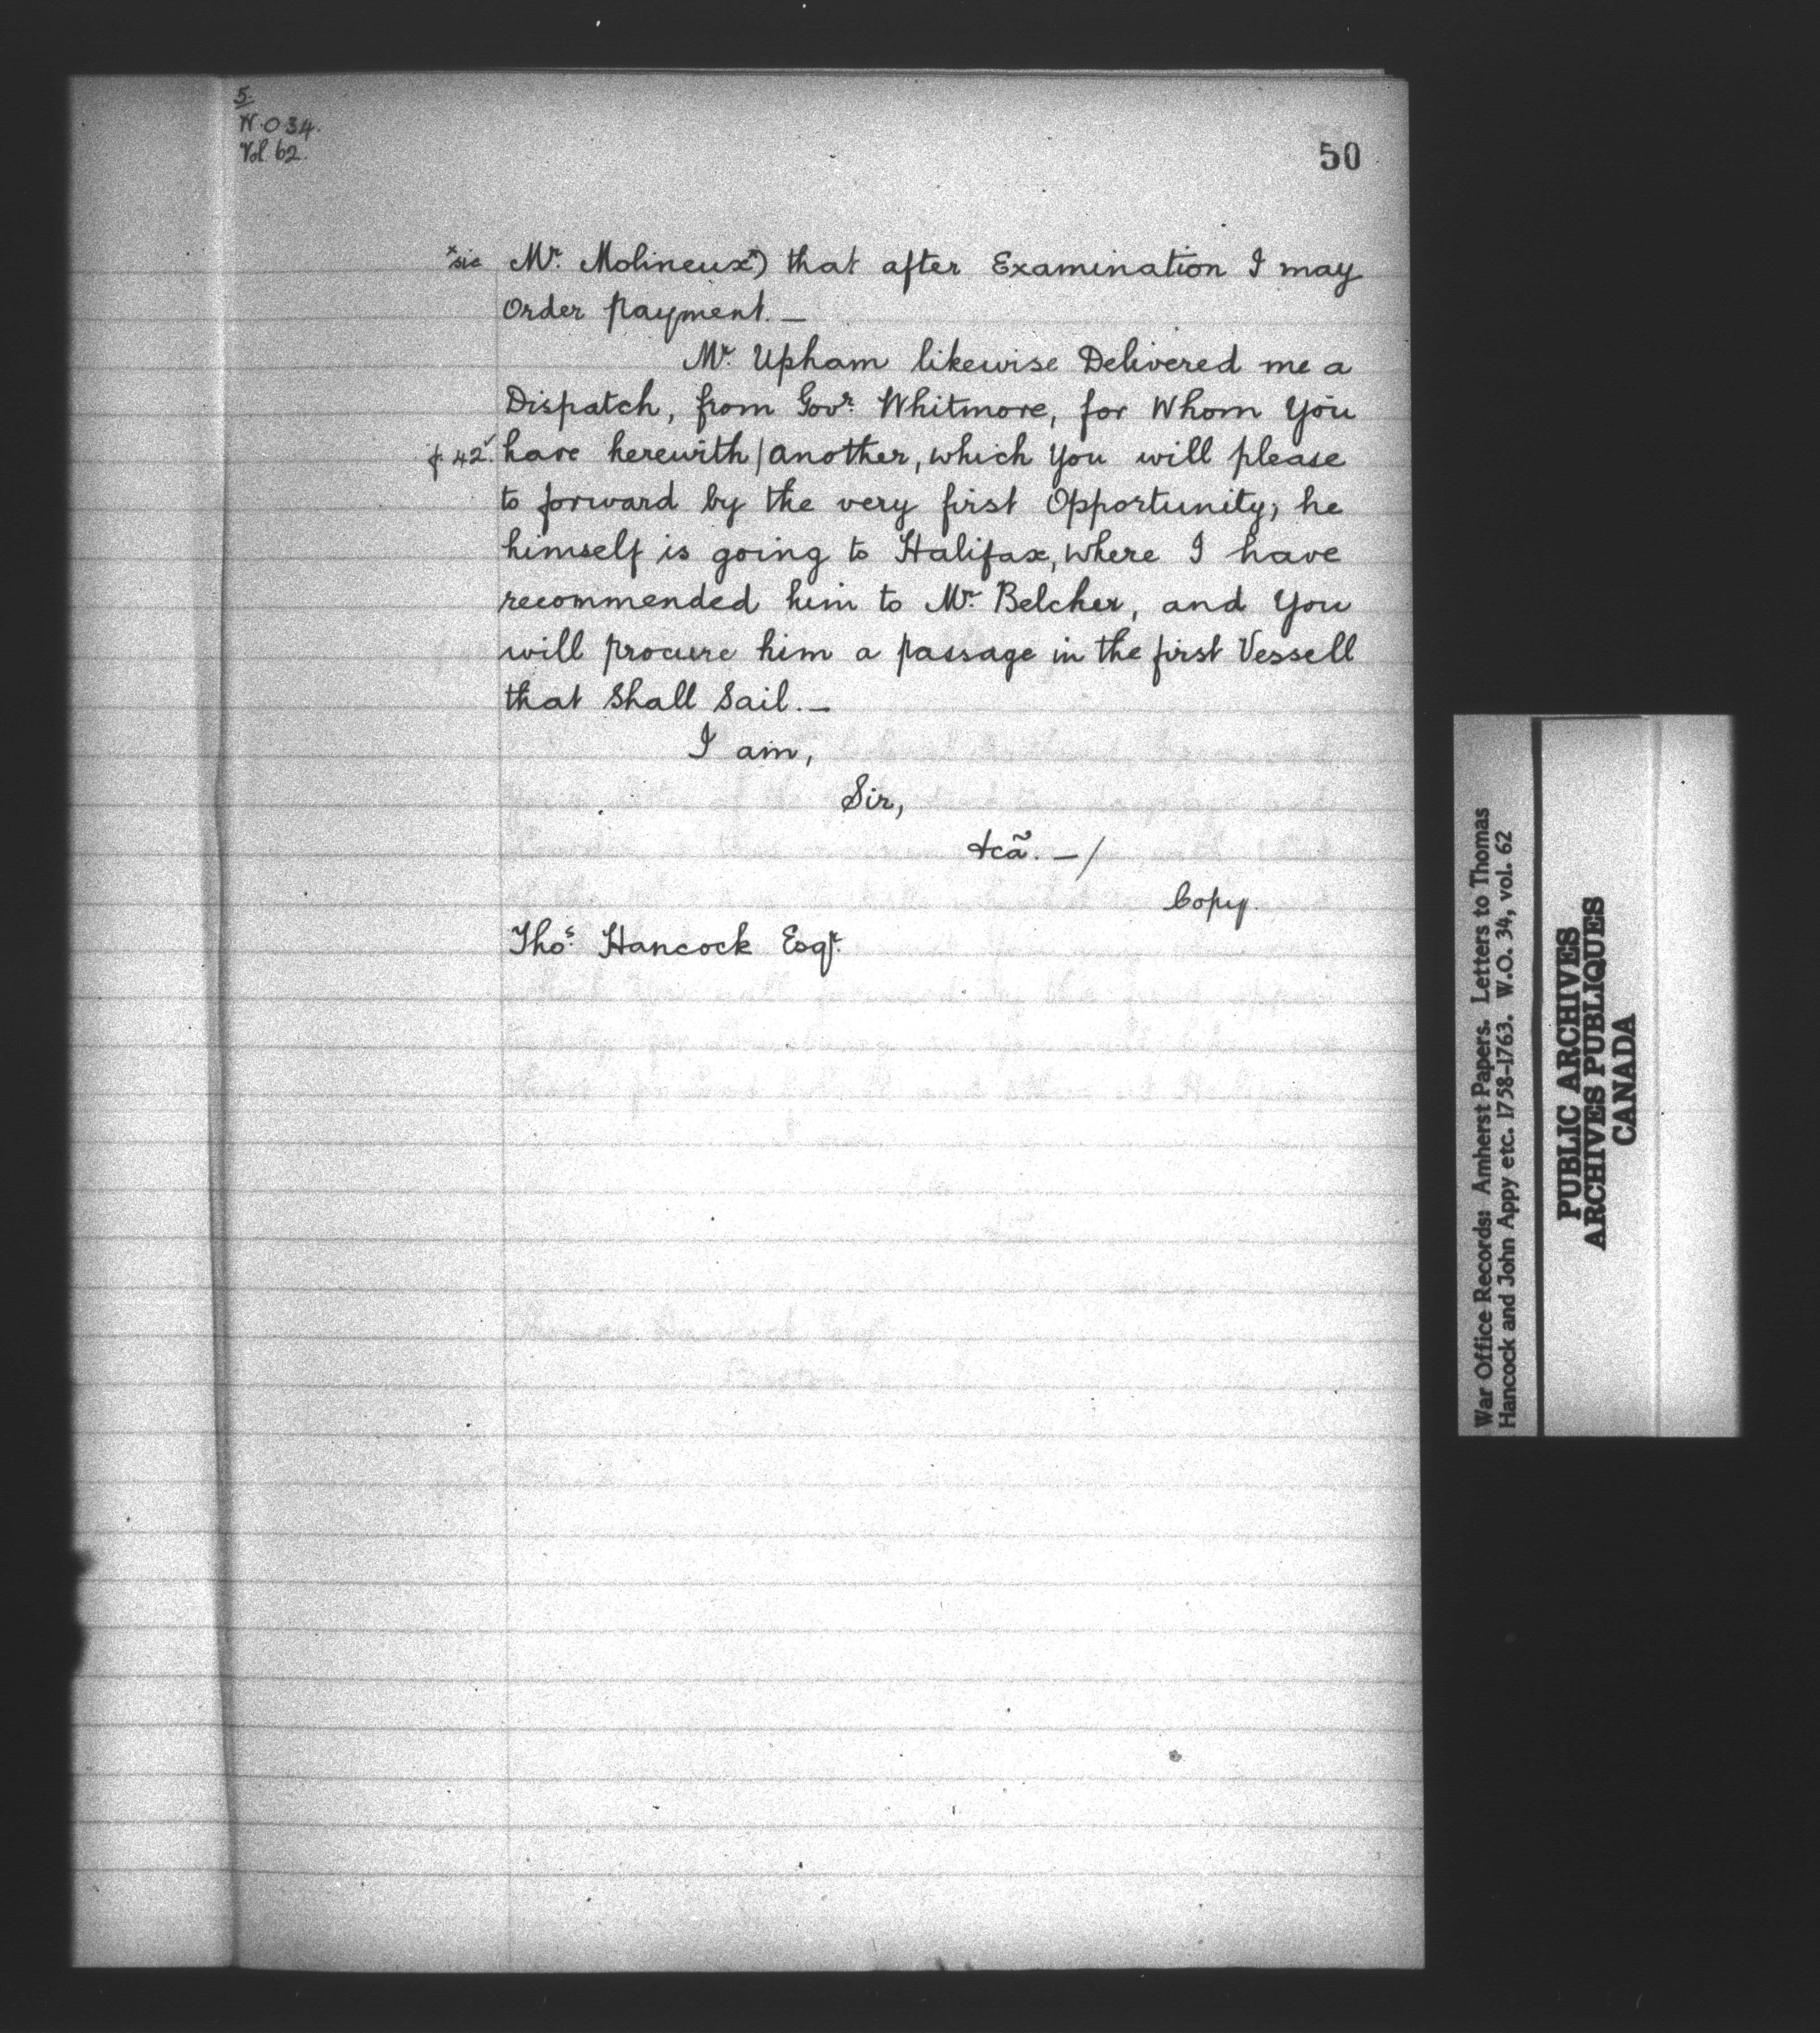 5.
W.O 34.
Vol. 62.
50
×sic Mr. Molineux×) that after Examination I may
Order payment. —
Mr. Upham likewise Delivered me a
Dispatch, from Govr. Whitmore, for Whom You
f. 42v. have herewith / another, which You will please
to forward by the very first Opportunity; he
himself is going to Halifax, where I have
recommended him to Mr. Belcher, and You
will procure him a passage in the first Vessell
that Shall Sail. —
I am,
Sir,
&cã. — /
Copy.
Thos. Hancock Esqr.
War Office Records: Amherst Papers. Letters to Thomas
Hancock and John Appy etc. 1758-1763. W.O. 34, vol. 62
PUBLIC ARCHIVES
ARCHIVES PUBLIQUES
CANADA